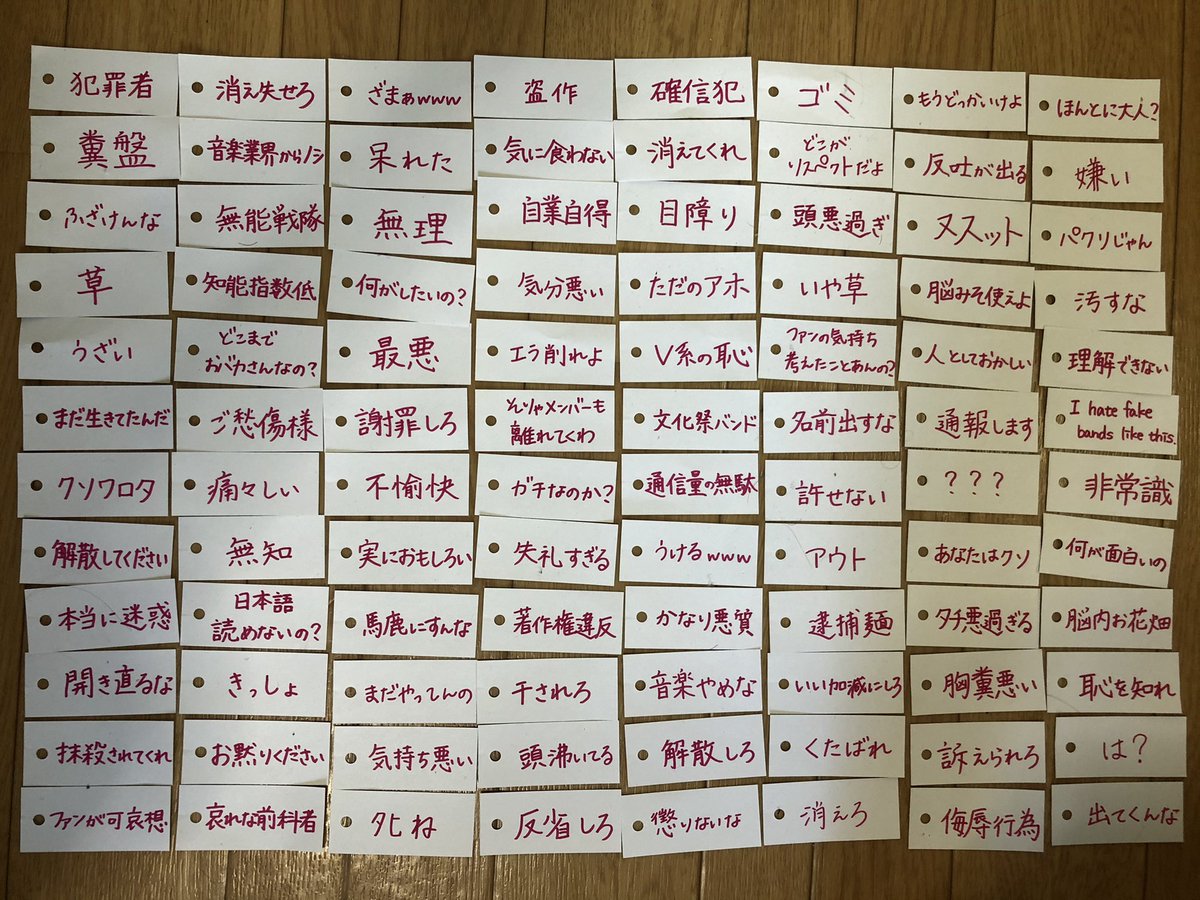 犯罪者
消え失せろ
ざまぁwww
盗作
確信犯
ゴミ
もうどっかいけよ
ほんとに大人?
糞盤
音楽業界からノシ
呆れた
気に食わない
消えてくれ
どこが
リスペクトだよ
反吐が出る
嫌い
ふざけんな
無能戦隊
無理
自業自得
目障り
頭悪過ぎ
ヌスット
パクリじゃん
草
知能指数低
何がしたいの?
気分悪い
ただのアホ
いや草
脳みそ使えよ
汚すな
うざい
どこまで
おバカさんなの?
最悪
エラ削れよ
V系の恥
ファンの気持ち
考えたことあんの?
人としておかしい
理解できない
まだ生きてたんだ
ご愁傷様
謝罪しろ
そりゃメンバーも
離れてくわ
文化祭バンド
名前出すな
通報します
I hate fake
bands like this.
クソワロタ
痛々しい
不愉快
ガチなのか?
通信量の無駄
許せない
???
非常識
解散してください
無知
実におもしろい
失礼すぎる
うけるwww
アウト
あなたはクソ
何が面白いの
本当に迷惑
日本語
読めないの?
馬鹿にすんな
著作権違反
かなり悪質
逮捕麺
タチ悪過ぎる
脳内お花畑
開き直るな
きっしょ
まだやってんの
干されろ
音楽やめな
いい加減にしろ
胸糞悪い
恥を知れ
抹殺されてくれ
お黙りください
気持ち悪い
頭沸いてる
解散しろ
くたばれ
訴えられろ
は?
ファンが可哀想
哀れな前科者
タヒね
反省しろ
懲りないな
消えろ
侮辱行為
出てくんな